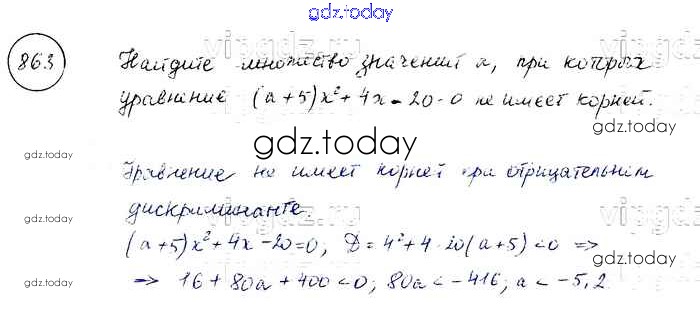 gdz.today
863
Найдите множество значений a, при которых
уравнение (a+5)x²+4x-20=0 не имеет корней.
gdz.today
gdz.today
gdz.today
Уравнение не имеет корней при отрицательном
дискриминанте.
(a+5)x²+4x-20=0; D=4²+4·20(a+5)<0 =>
=> 16+80a+400<0; 80a<-416; a<-5,2
gdz.today
gdz.today
gdz.today